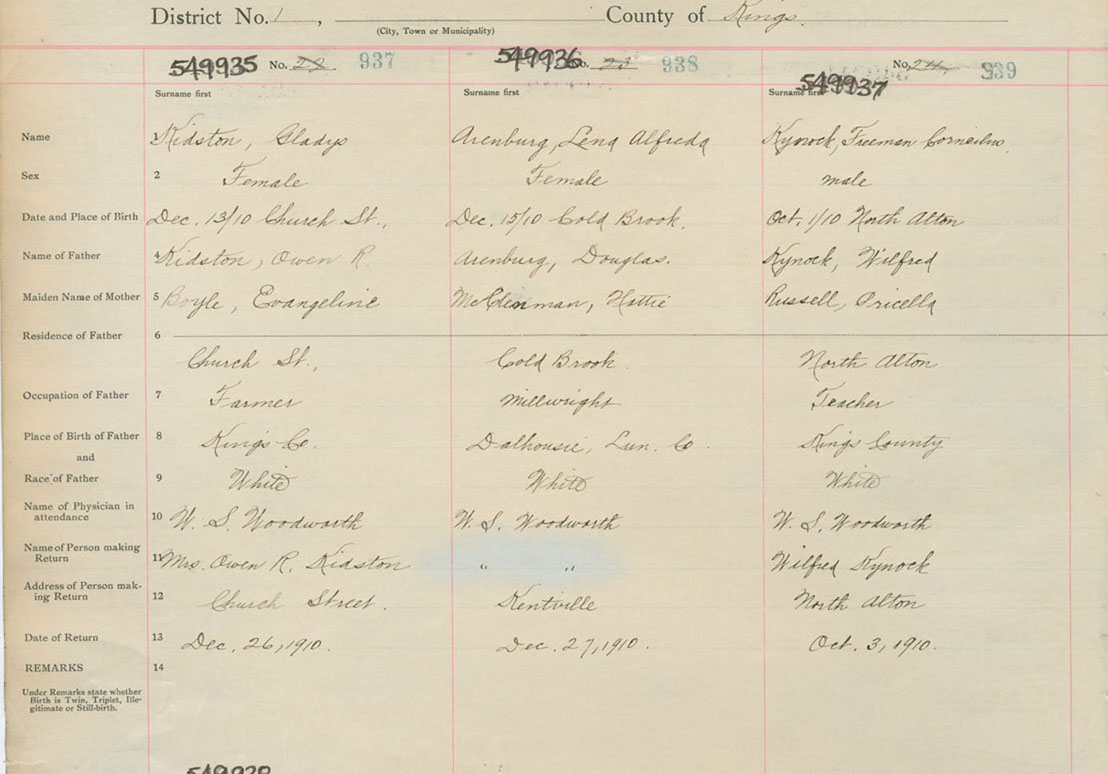 District No. 1, County of Kings
(City, Town or Municipality)
549935 No. 22 937 549936 No. 23 938 No. 24 939
549937
Surname first Surname first Surname first
Name 1 Kidston, Gladys Arenburg, Lena Alfreda Kynock, Freeman Corneilus.
Sex 2 Female Female male
Date and Place of Birth Dec. 13/10 Church St., Dec. 15/10 Cold Brook. Oct. 1/10 North Alton
Name of Father Kidston, Owen R. Arenburg, Douglas. Kynock, Wilfred
Maiden Name of Mother 5 Boyle, Evangeline Hattie Russell, Pricella
Residence of Father 6
Church St., Cold Brook. North Alton
Occupation of Father 7 Farmer Millwright Teacher
Place of Birth of Father 8 King's Co. Dalhousie, Lun. Co. Kings County
and
Race of Father 9 White White White
Name of Physician in
attendance 10 W. S. Woodworth W. S. Woodworth W. S. Woodworth
Name of Person making
Return 11 Mrs. Owen R. Kidston " " Wilfred Kynock
Address of Person mak-
ing Return 12 Church Street. Kentville North Alton
Date of Return 13 Dec. 26, 1910. Dec. 27, 1910. Oct. 3, 1910.
REMARKS 14
Under Remarks state whether
Birth is Twin, Triplet, Ille-
gitimate or Still-birth.